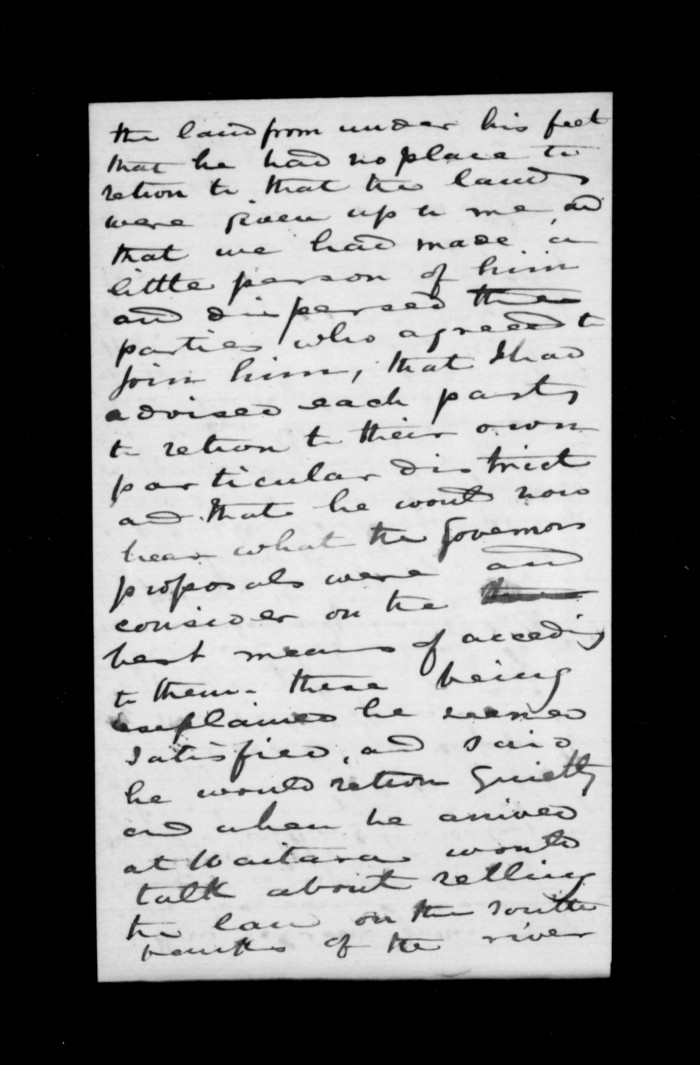 the land from under his feet
that he had no place to
retion to that the lands
were given up to me and
that we had made a
little person of him
and dispersed
parties who agreed to
join him, that I had
advised each party
to retion to their own
particular district
and that he would now
hear what the Governors
proposals were and
consider on the
best means of acceding
to them. these being
explained he seemed
satisfied, and said
he would retion quietly
and when he arrived
at Waitara would
talk about selling
the lan on the South
banks of the river